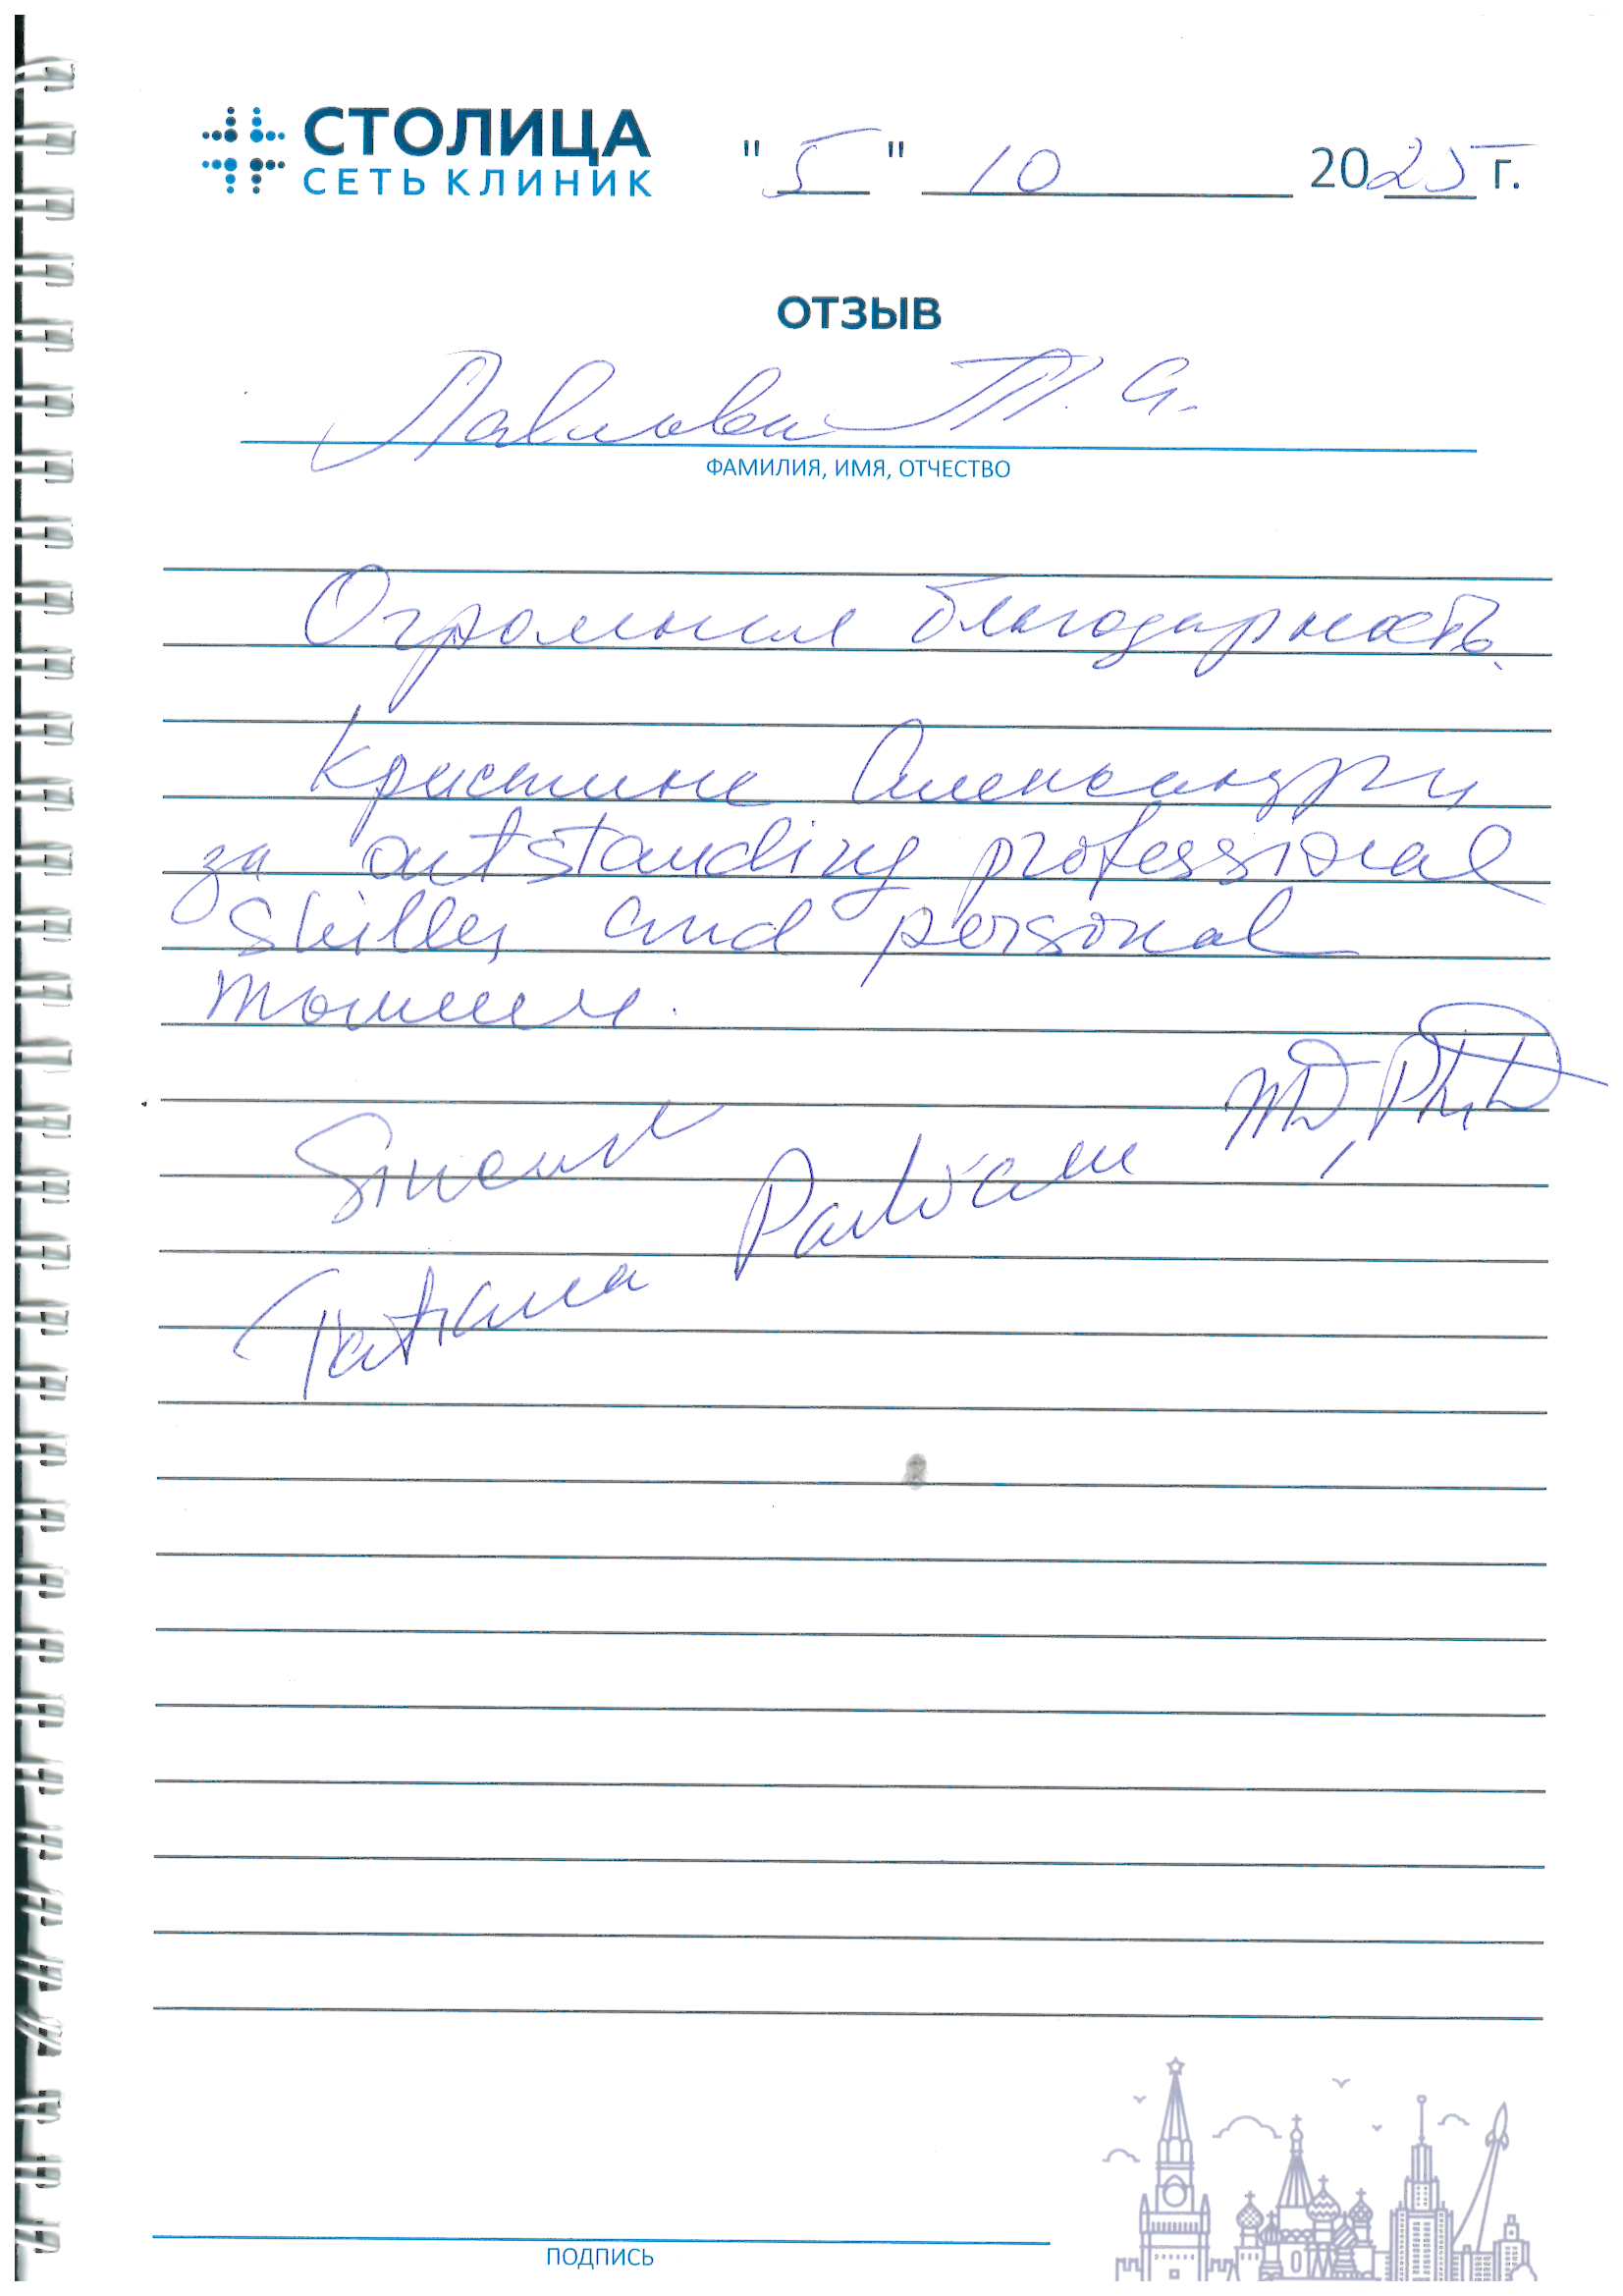 СТОЛИЦА
СЕТЬ КЛИНИК
"5" 10 2025 г.
ОТЗЫВ
Павлова Т. А.
ФАМИЛИЯ, ИМЯ, ОТЧЕСТВО
Огромная благодарность
Кристине Александру
за outstanding professional
skills and personal
Sincerely
Tatiana Pavlova MD, PhD
ПОДПИСЬ